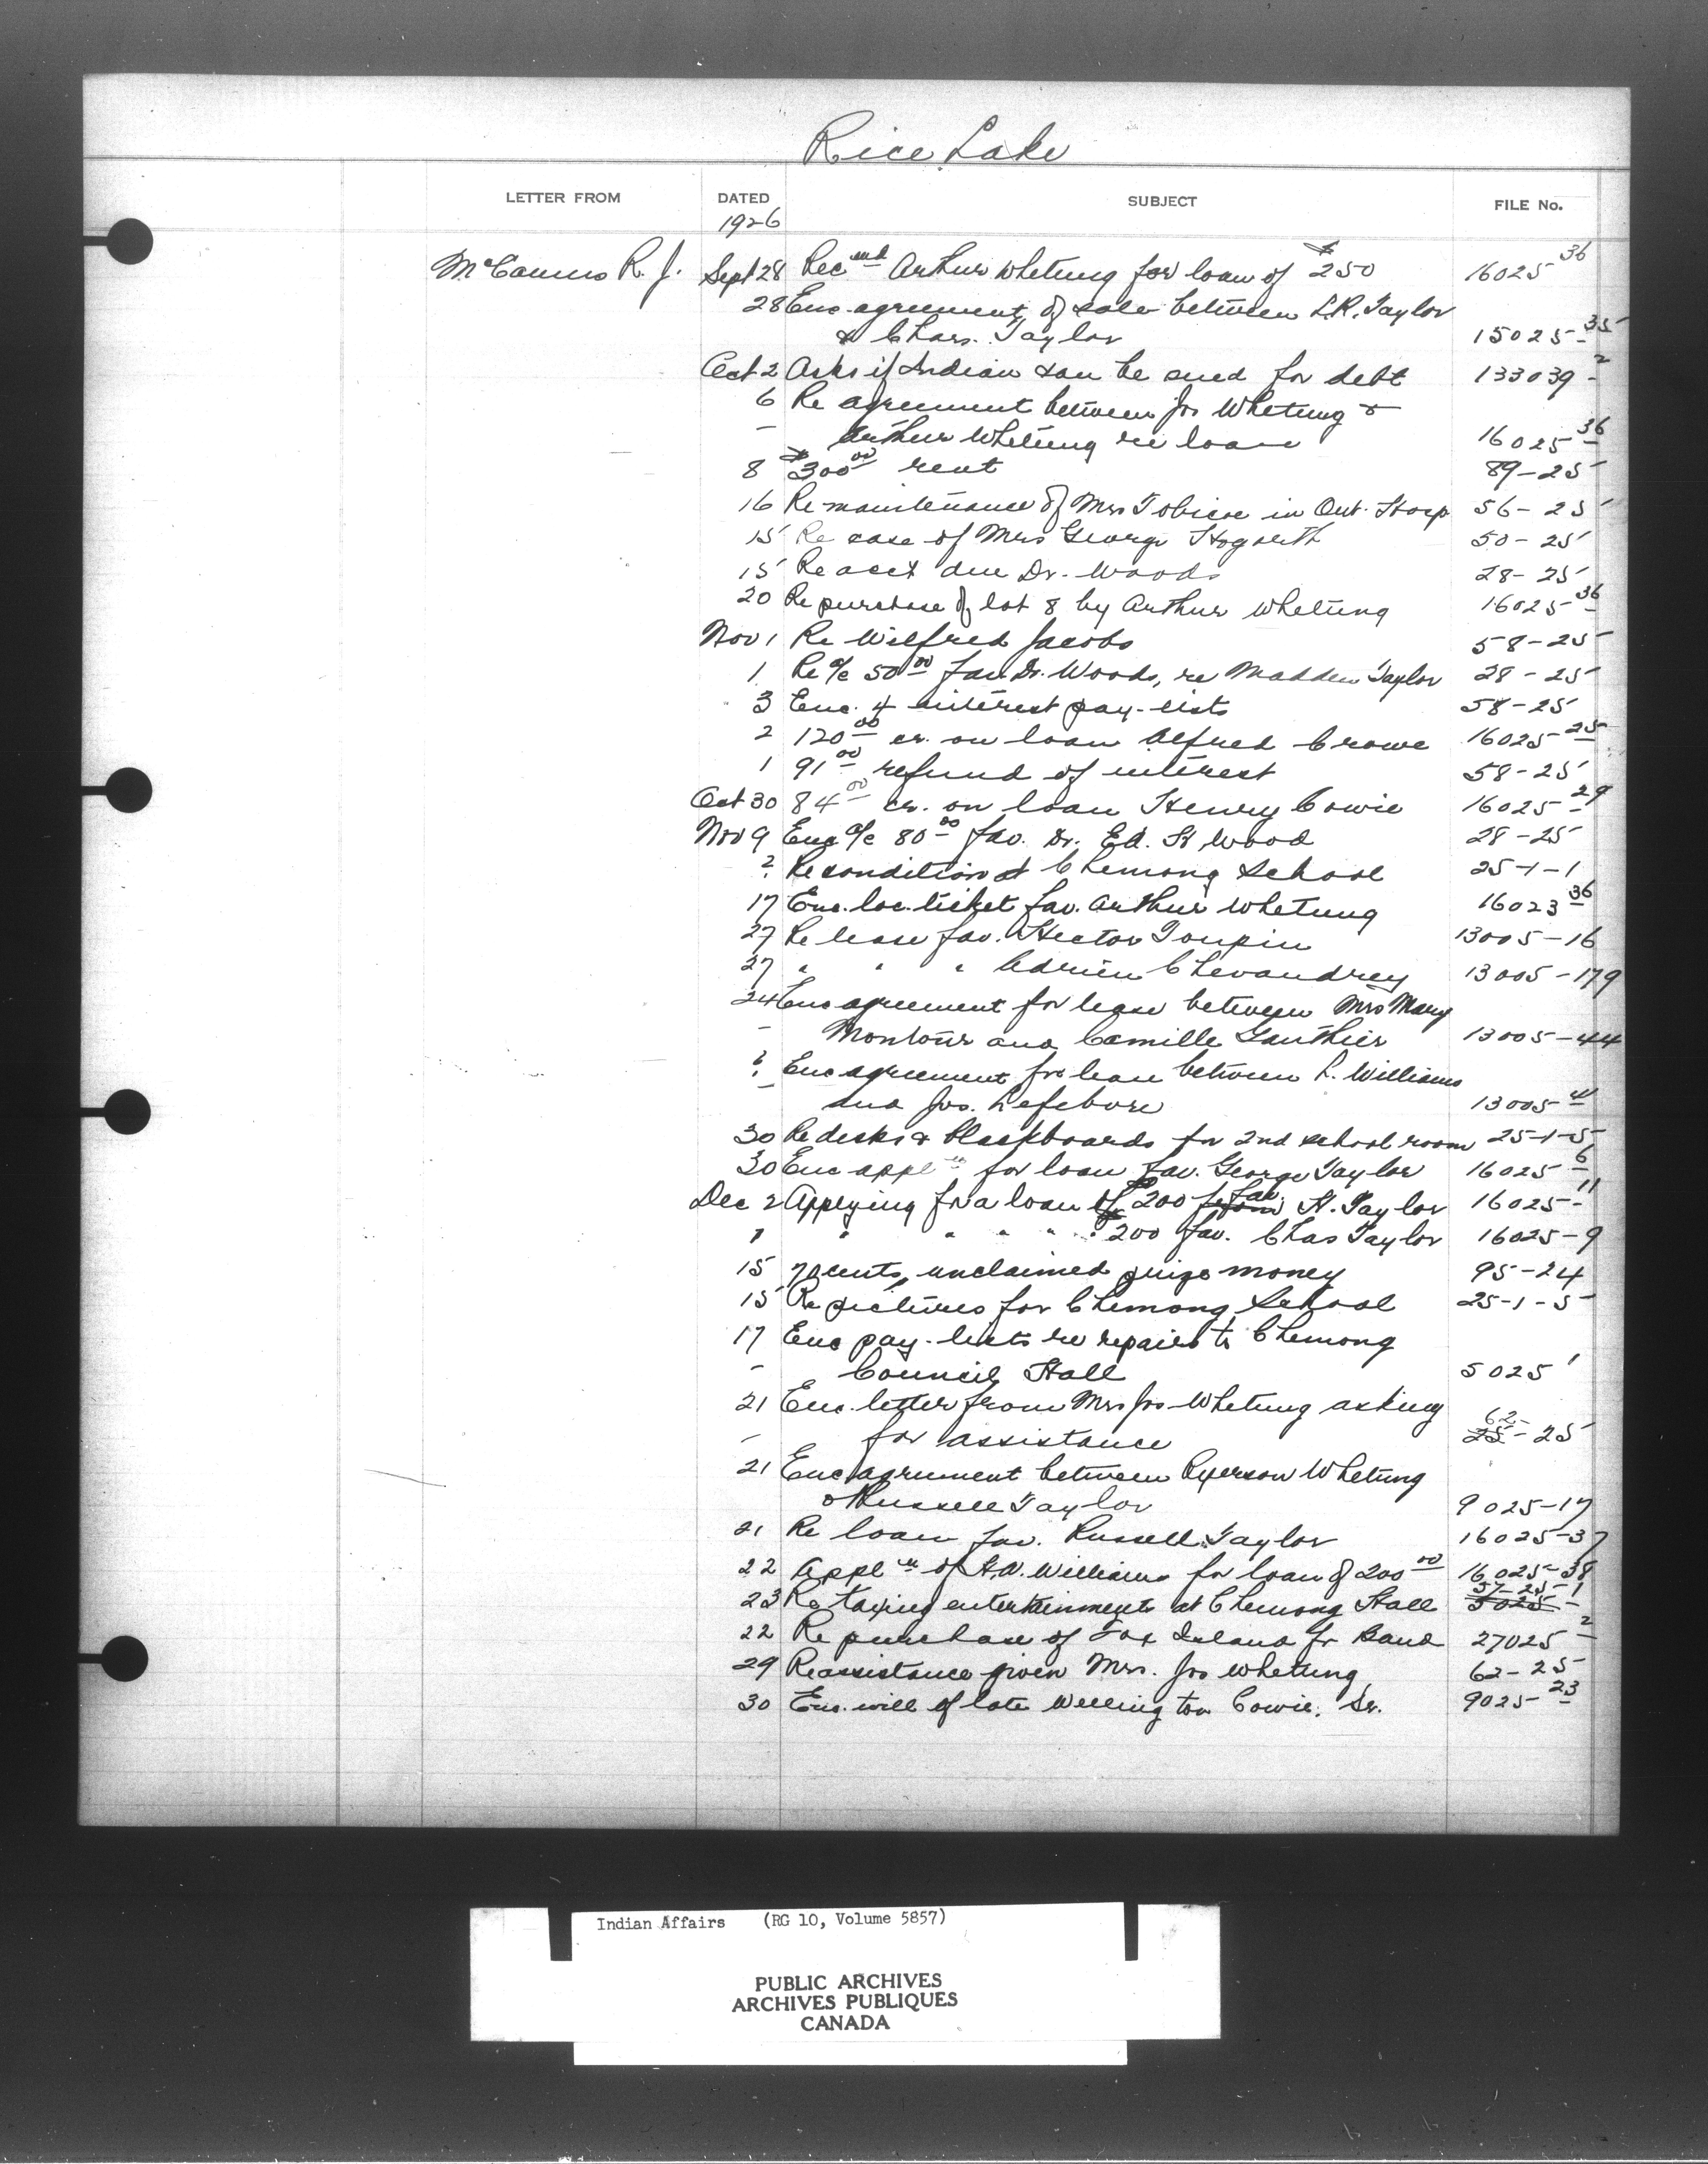 Rice Lake
LETTER FROM DATED SUBJECT FILE No.
1926
McCamus R. J. Sept 28 Rec mt Arthur Whetung for loan of $250 16025 36
28 Enc. agreement of sale between L.R. Taylor
& Chas. Taylor 15025-35
Oct 2 Asks if Indian can be sued for debt 133039-2
6 Re agreement between Jos Whetung &
- Arthur Whetung re loan 16025 36
8 $300 00 rent 89-25
16 Re maintenance of Mrs Tobicoe in Ont. Hosp 56-25
15 Re case of Mrs George Hogarth 50-25
15 Re acct due Dr. Woods 28-25
20 Re purchase of lot 8 by Arthur Whetung 16025-36
Nov 1 Re Wilfred Jacobs 58-25
1 Re a/c 50 00 fav Dr. Woods, re Madden Taylor 28-25
3 Enc. 4 interest pay-lists 58-25
2 120 00 cr. on loan Alfred Crowe 16025-25
1 91 00 refund of interest 58-25
Oct 30 84 00 cr. on loan Henry Cowie 16025-29
Nov 9 Enc a/c 80 00 fav. Dr. Ed. H Wood 28-25
? Re condition of Chemong School 25-1-1
17 Enc. loc. ticket fav. Arthur Whetung 16023 36
27 Re lease fav. Hector Toupin 13005-16
27 " " " Adrien Chevandrey 13005-179
24 Enc agreement for lease between Mrs Mary
- Montour and Camille Gauthier 13005-44
? Enc agreement for lease between L. Williams
- and Jos. Lefebvre 13005 4
30 Re desks & blackboards for 2nd school room 25-1-5
30 Enc appl n for loan fav. George Taylor 16025-6
Dec 2 Applying for a loan of $200 from fav. H. Taylor 16025-11
1 " " " " " $200 fav. Chas Taylor 16025-9
15 70 cents, unclaimed prize money 95-24
15 Re pictures for Chemong School 25-1-5
17 Enc pay-lists re repairs to Chemong
- Council Hall 5025 1
21 Enc. letter from Mrs Jos Whetung asking
- for assistance 62-25
21 Enc agreement between Ryerson Whetung
& Russell Taylor 9025-17
21 Re loan fav. Russell Taylor 16025-37
22 Appl n of H.A. Williams for loan of 200 00 16025-38
23 Re taxing entertainments at Chemong Hall 57-25-1 5025-
22 Re purchase of Fox Island for Band 27025-2
29 Re assistance given Mrs. Jos Whetung 62-25
30 Enc. will of late Wellington Cowie, Sr. 9025-23
Indian Affairs (RG 10, Volume 5857)
PUBLIC ARCHIVES
ARCHIVES PUBLIQUES
CANADA